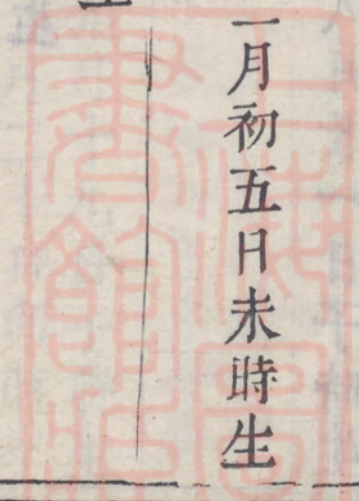 一月初五日未時生